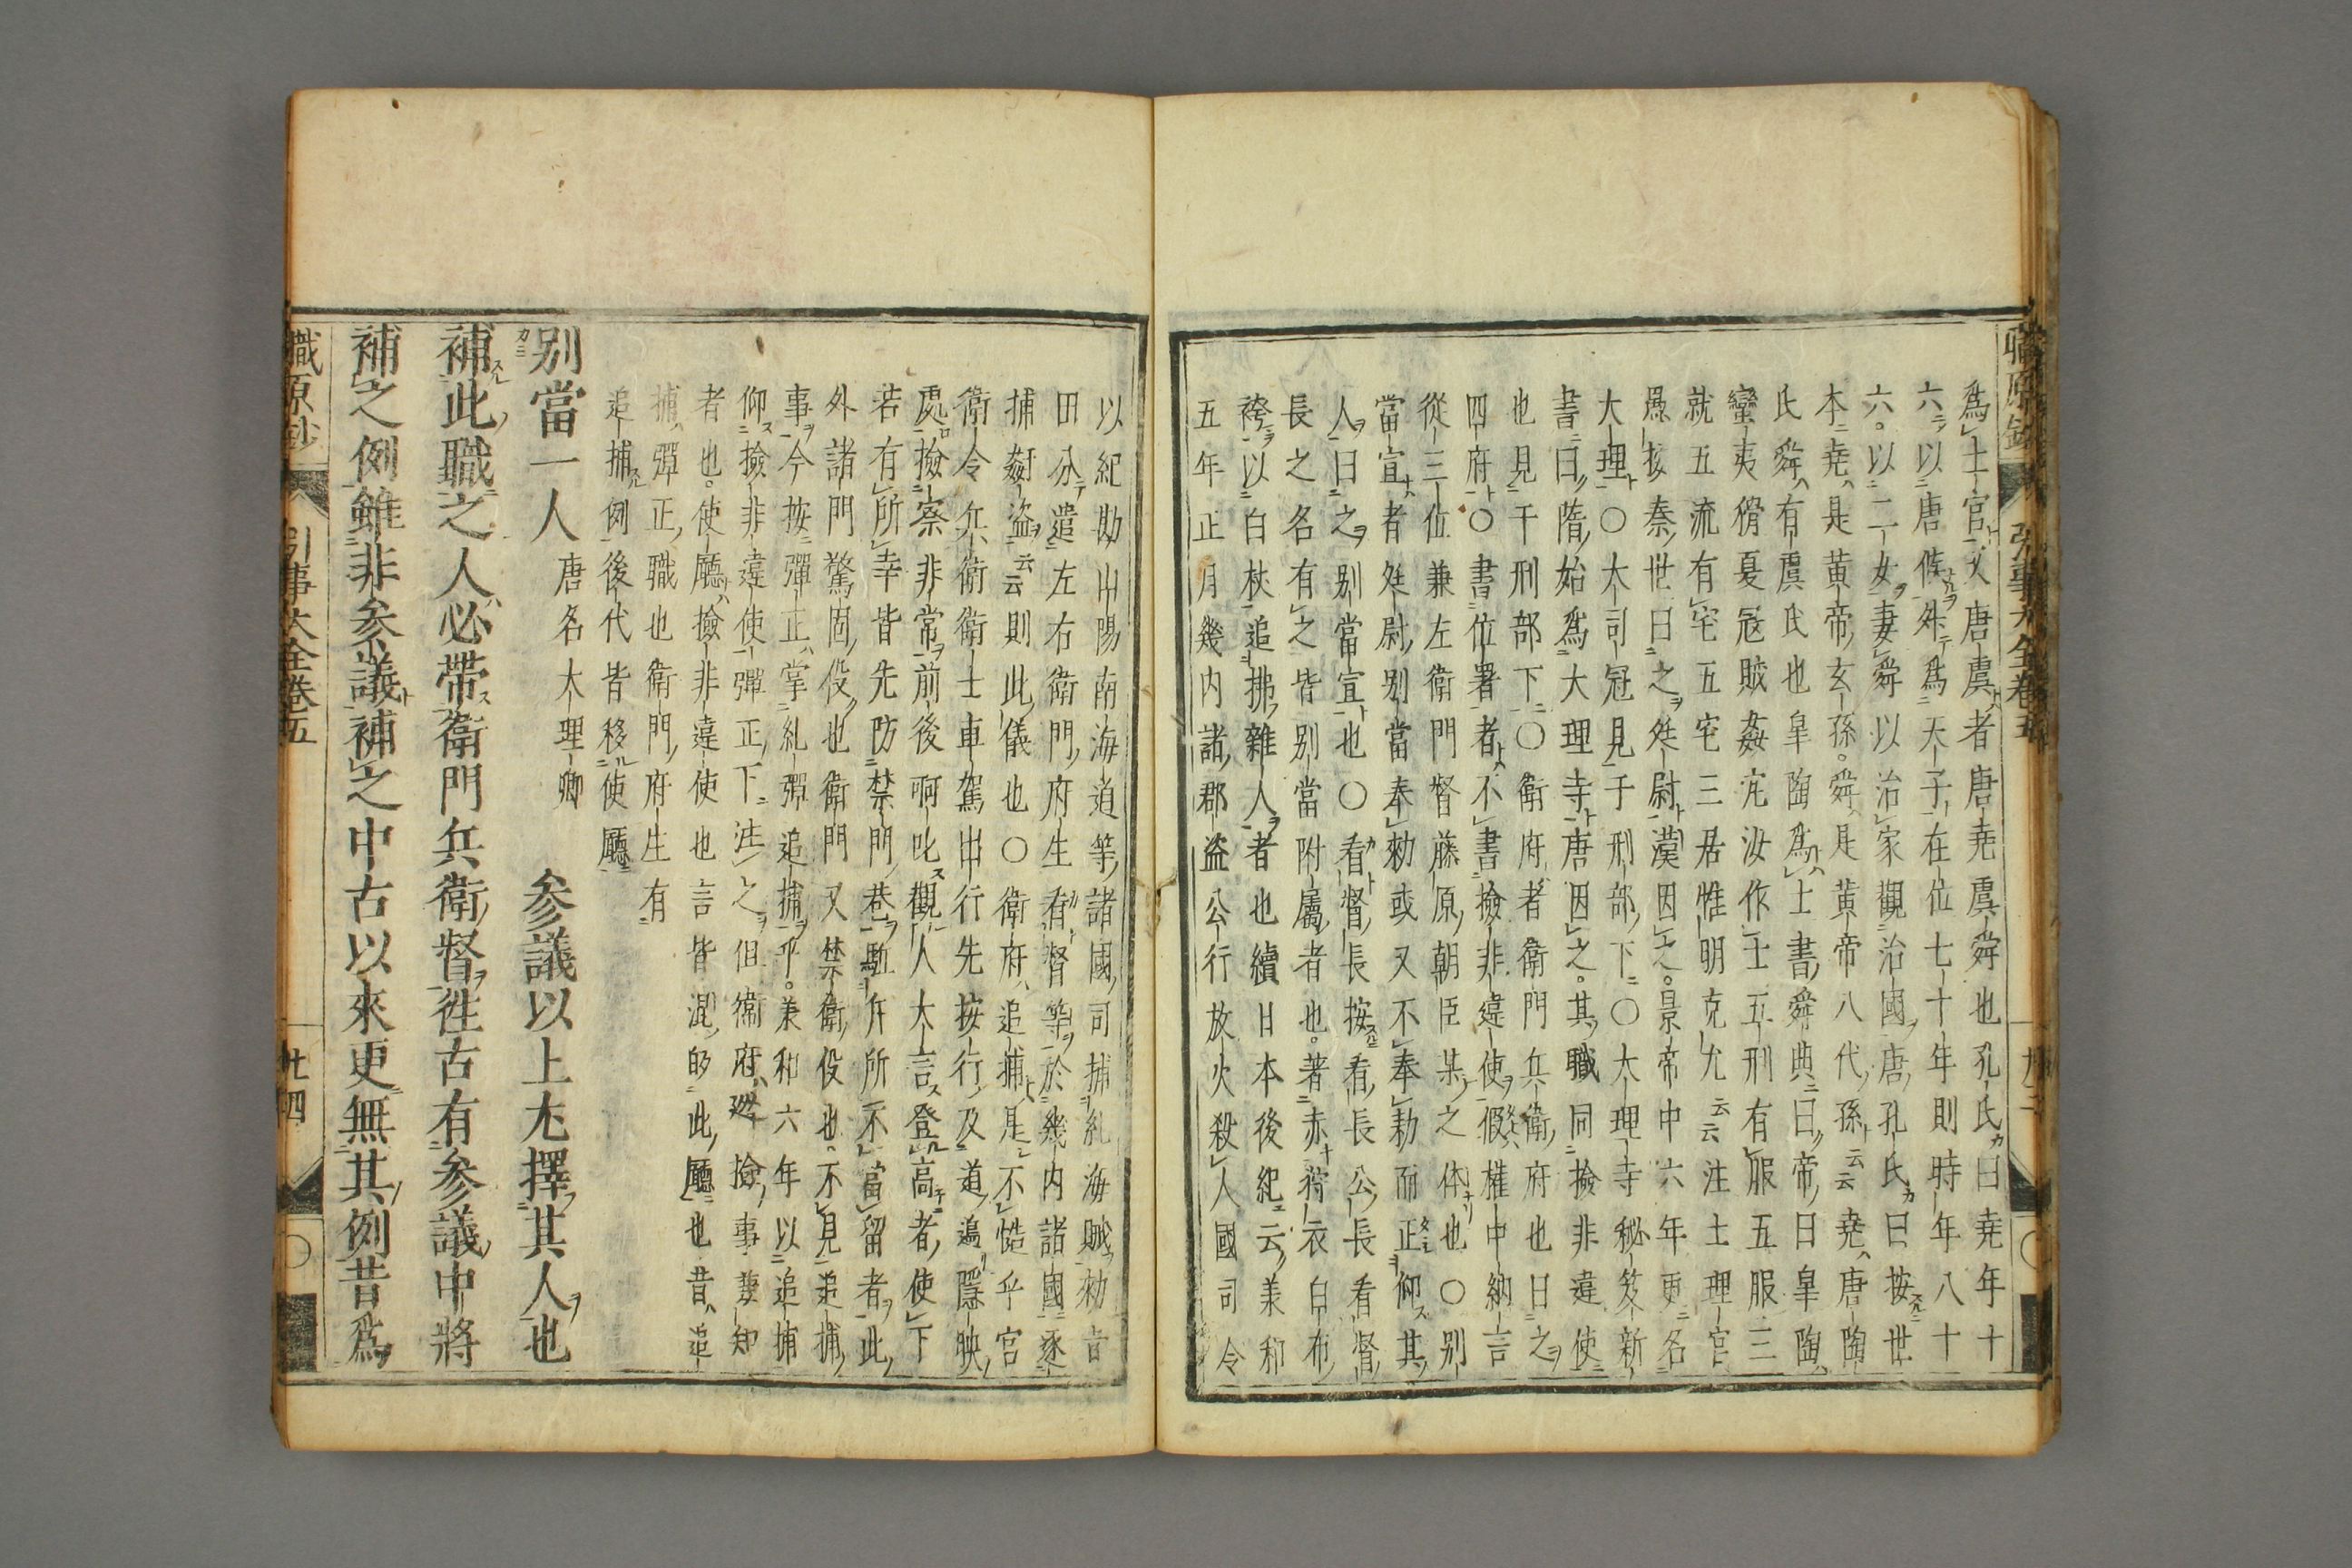 職原鈔 引事大全卷五
爲士官文唐虞者唐堯虞舜也孔氏曰堯年十
六以唐侯外爲天子在位七十年則時年八十
六以二女妻舜以治家觀治國唐孔氏曰按世
本堯是黄帝玄孫舜是黄帝八代孫云云堯唐陶
氏舜有虞氏也皐陶爲士書舜典曰帝曰皐陶
蠻夷猾夏冦賊姦宄汝作士五刑有服五服三
就五流有宅五宅三居惟明克允云云注士理官
愚按秦世曰之廷尉漢因之景帝中六年更名
大理〇大司冠見于刑部下〇大理寺秘笈新
書曰隋始爲大理寺唐因之其職同撿非違使
也見于刑部下〇衛府者衛門兵衛府也日之
四府〇書位署者不書撿非違使假權中納言
從三位兼左衛門督藤原朝臣某之体也〇别
當宣者廷尉别當奉勅或又不奉勅而正仰其
人曰之别當宣也〇看督長按看長公長看督
長之名有之皆别當附屬者也著赤狩衣白布
袴以白杖追拂雜人者也續日本後紀云兼和
五年正月幾内諸郡盗公行放火殺人國司令
以紀勘山陽南海道等諸國司捕糺海賊勅吉
田分遣左右衛門府生看督等於幾内諸國逐
捕姧盗云云則此儀也〇衛府追捕是不慥乎宫
衛令兵衛衛士車駕出行先按行及道邉隱映
處撿察非常前後呵叱觀人大言登高者使下
若有所幸皆先防禁門巷駈斥所不當留者此
外諸門驚固役也衛門又禁衛役也不見追捕
事今按彈正掌糺彈追捕乎兼和六年以追捕
仰撿非違使彈正下注之但衛府巡撿事兼知
者也使廳撿非違使也言皆混的此廳也昔追
捕彈正職也衛門府生有
追捕例後代皆移使廳
别當一人 唐名大理卿 参議以上尤擇其人也
補此職之人必帯衛門兵衛督徃古有参議中將
補之例雖非参議補之中古以來更無其例昔爲
職原鈔 引事大全卷五 廿四